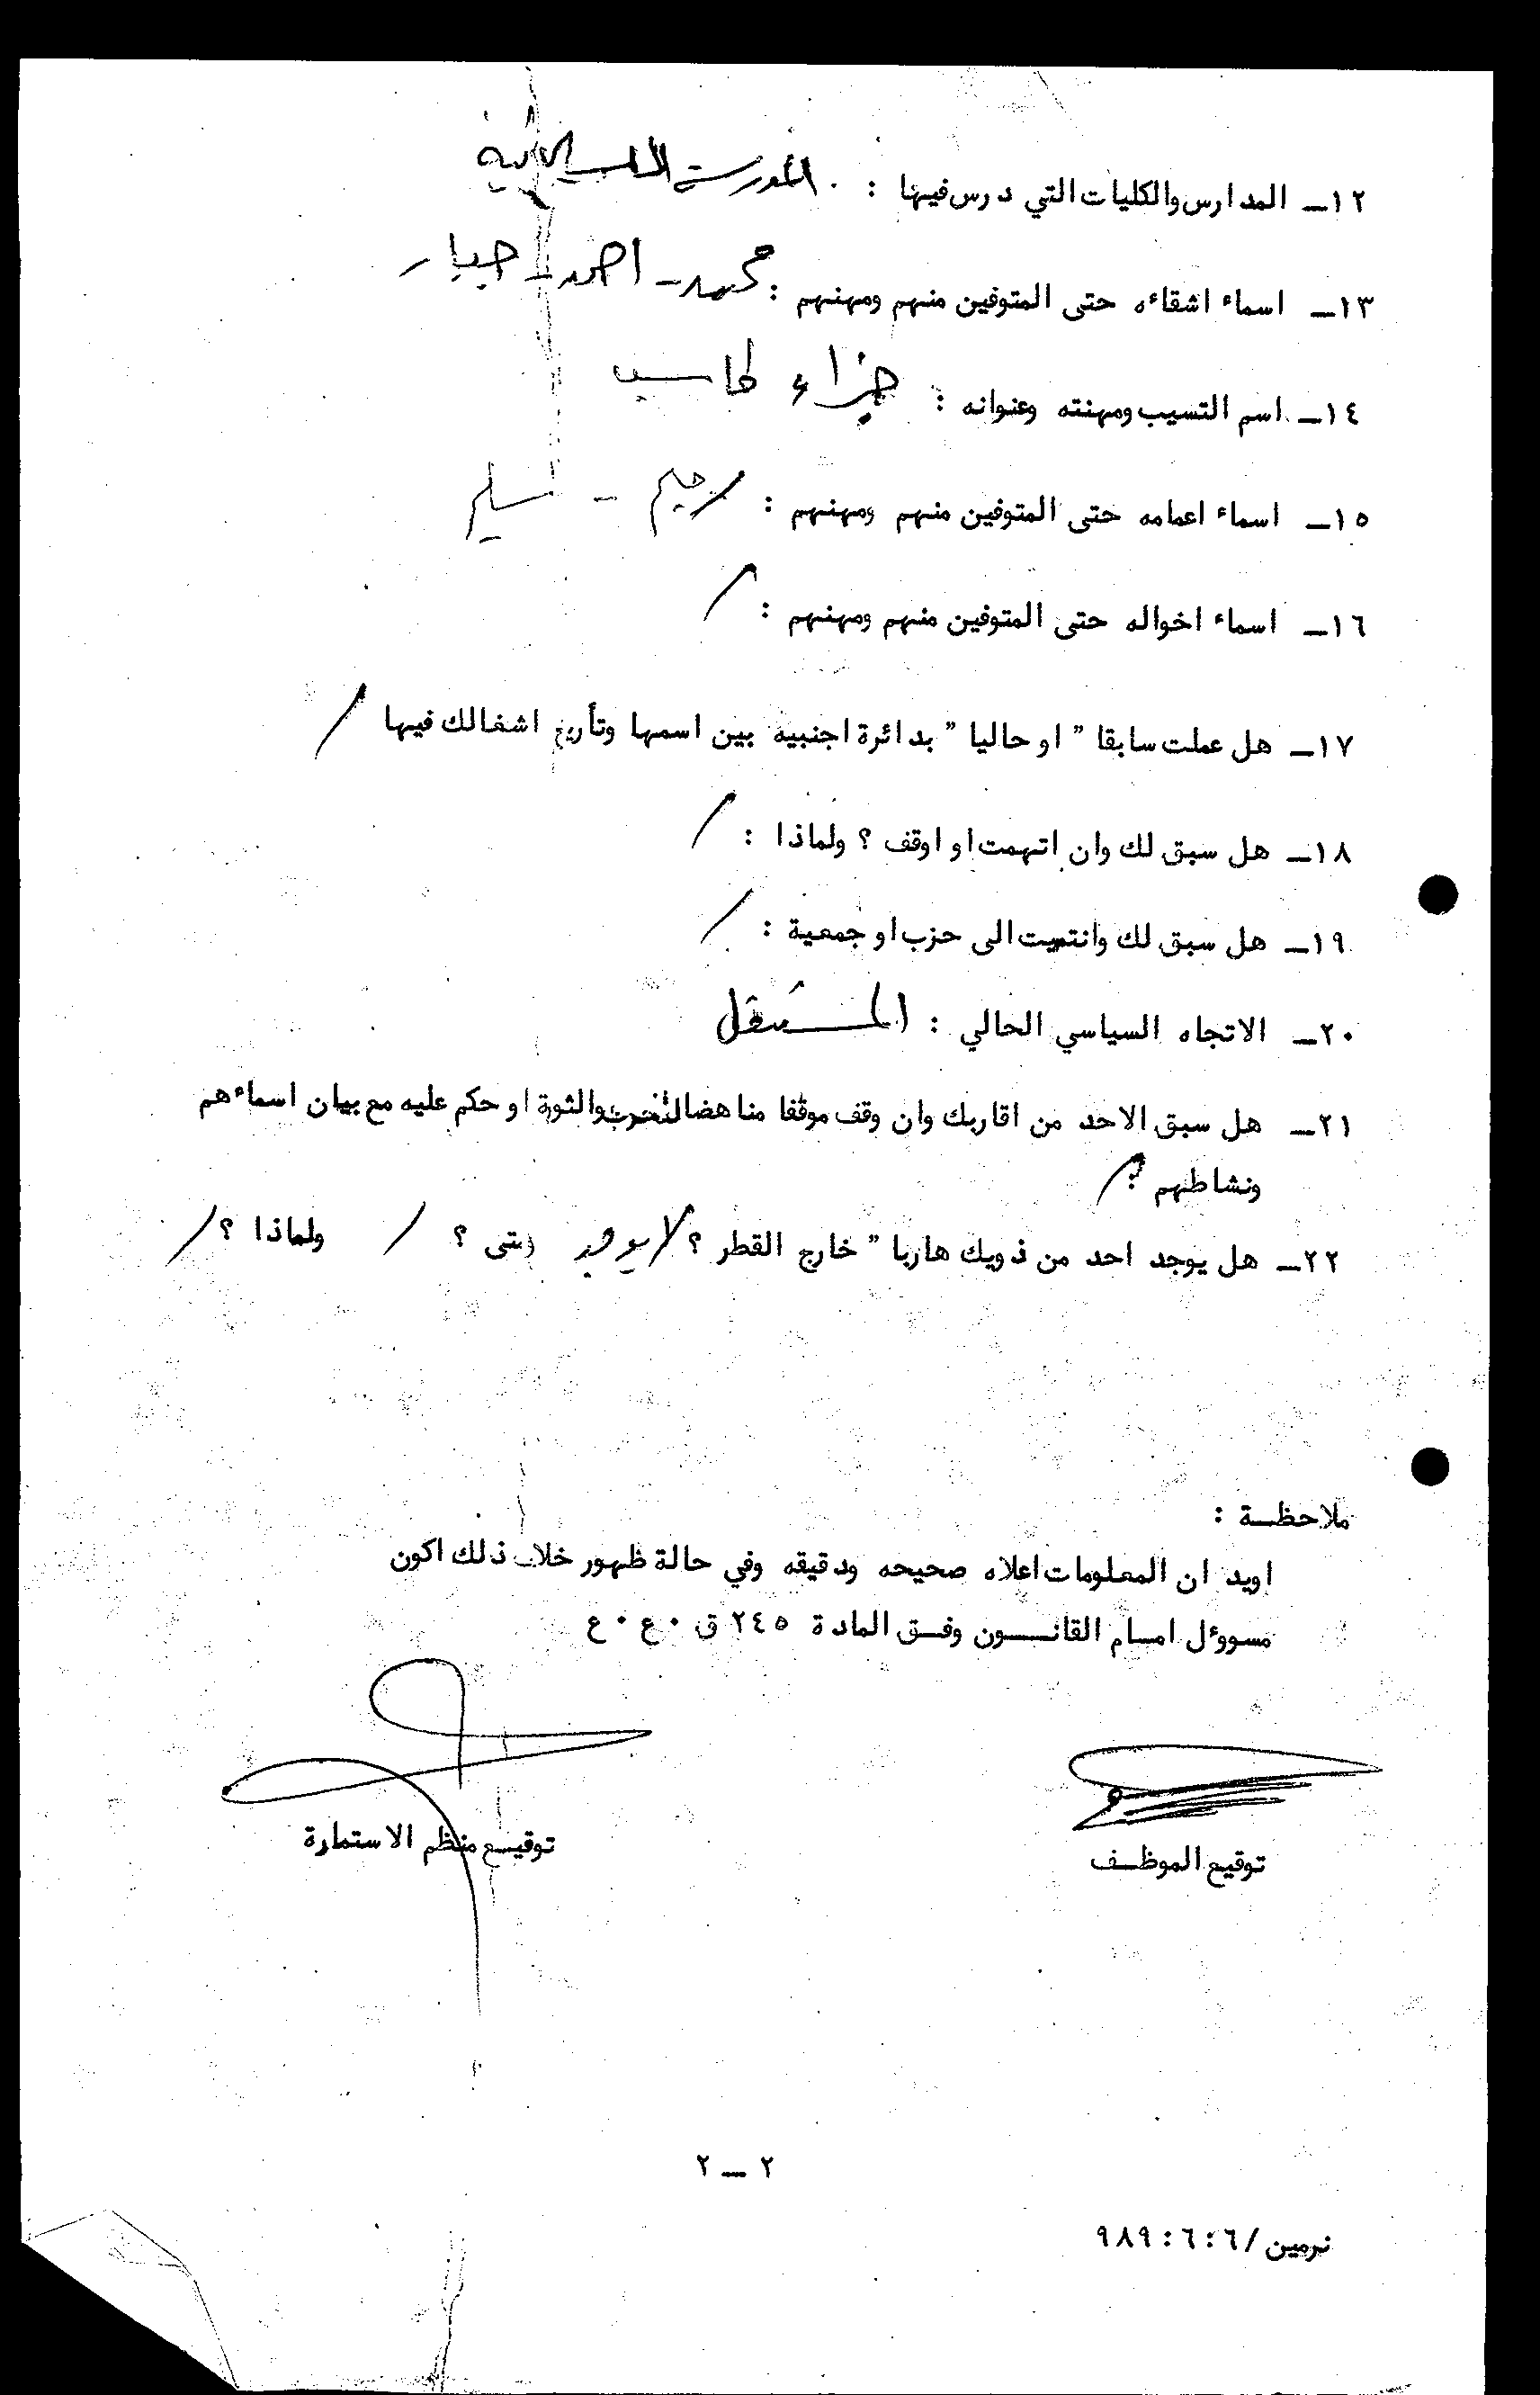 ١٢ــ المدارس والكليات التي درس فيها : المدرسة
١٣ــ اسماء اشقاءه حتى المتوفين منهم ومهنهم : محمد - احمد - جبار
١٤ــ اسم التسيب ومهنته وعنوانه :
١٥ــ اسماء اعمامه حتى المتوفين منهم ومهنهم : رحيم - سليم
١٦ــ اسماء اخواله حتى المتوفين منهم ومهنهم : /
١٧ــ هل عملت سابقا " او حاليا " بدائرة اجنبيه بين اسمها وتأريخ اشغالك فيها /
١٨ــ هل سبق لك وان اتهمت او اوقف ؟ ولماذا : /
١٩ــ هل سبق لك وانتميت الى حزب او جمعية : /
٢٠ــ الاتجاه السياسي الحالي : المستقل
٢١ــ هل سبق الاحد من اقاربك وان وقف موقفا مناهضا والثورة او حكم عليه مع بيان اسماءهم
ونشاطهم ؟ /
٢٢ــ هل يوجد احد من ذويك هاربا " خارج القطر ؟ لا يوجد متى ؟ / ولماذا ؟ /
ملاحظـــة :
اويد ان المعلومات اعلاه صحيحه ودقيقه وفي حالة ظهور خلاف ذلك اكون
مسووٴل امـام القانـــون وفـق المادة ٢٤٥ ق ٠ ع ٠ ع
توقيع الموظـف توقيـع منظم الاستمارة
٢ ــ ٢
نرمين / ٦ : ٦ : ٩٨٩